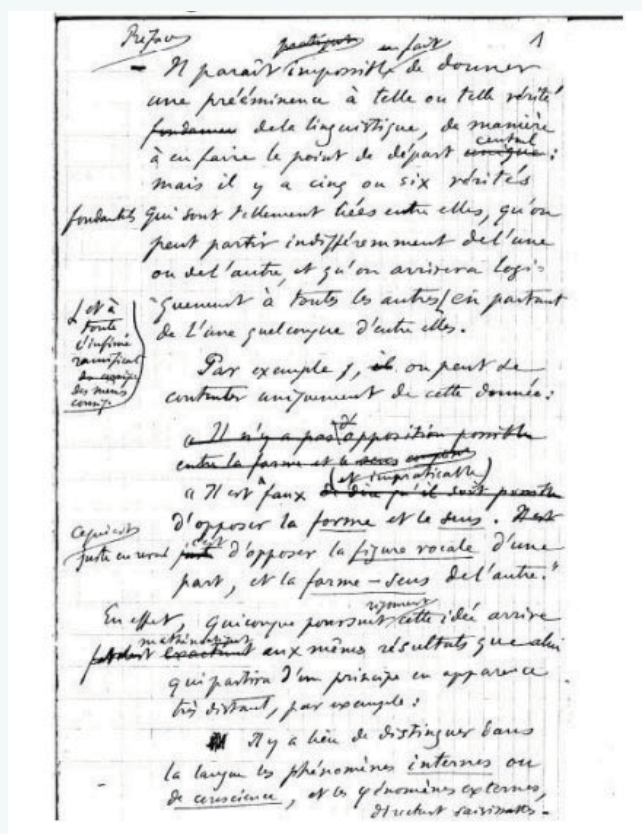 Préface
pratiquement en fait 1
– Il paraît impossible de donner
une prééminence à telle ou telle vérité
fondamen de la linguistique, de manière
à en faire le point de départ unique central :
mais il y a cinq ou six vérités
fondantes qui sont tellement liées entre elles, qu'on
peut partir indifféremment de l'une
ou de l'autre, et qu'on arrivera logi-
quement à toutes les autres en partant
et à
toute
l'infime
ramificat
des mens
conséq
de l'une quelconque d'entre elles.
Par exemple, on peut se
contenter uniquement de cette donnée :
« Il n'y a pas d'opposition possible
entre la forme et le sens
(et impraticable)
« Il est faux de dire qu'il soit possible
d'opposer la forme et le sens. Il est
Ce qui est
juste en revche juste c'est d'opposer la figure vocale d'une
part, et la forme–sens de l'autre. »
En effet, quiconque poursuit rigoureusmt cette idée arrive
mathématiqmt
exactement aux mêmes résultats que celui
qui partira d'un principe en apparence
très distant, par exemple :
Il y a lieu de distinguer dans
la langue les phénomènes internes ou
de conscience, et les phénomènes externes,
directmt saisissables –